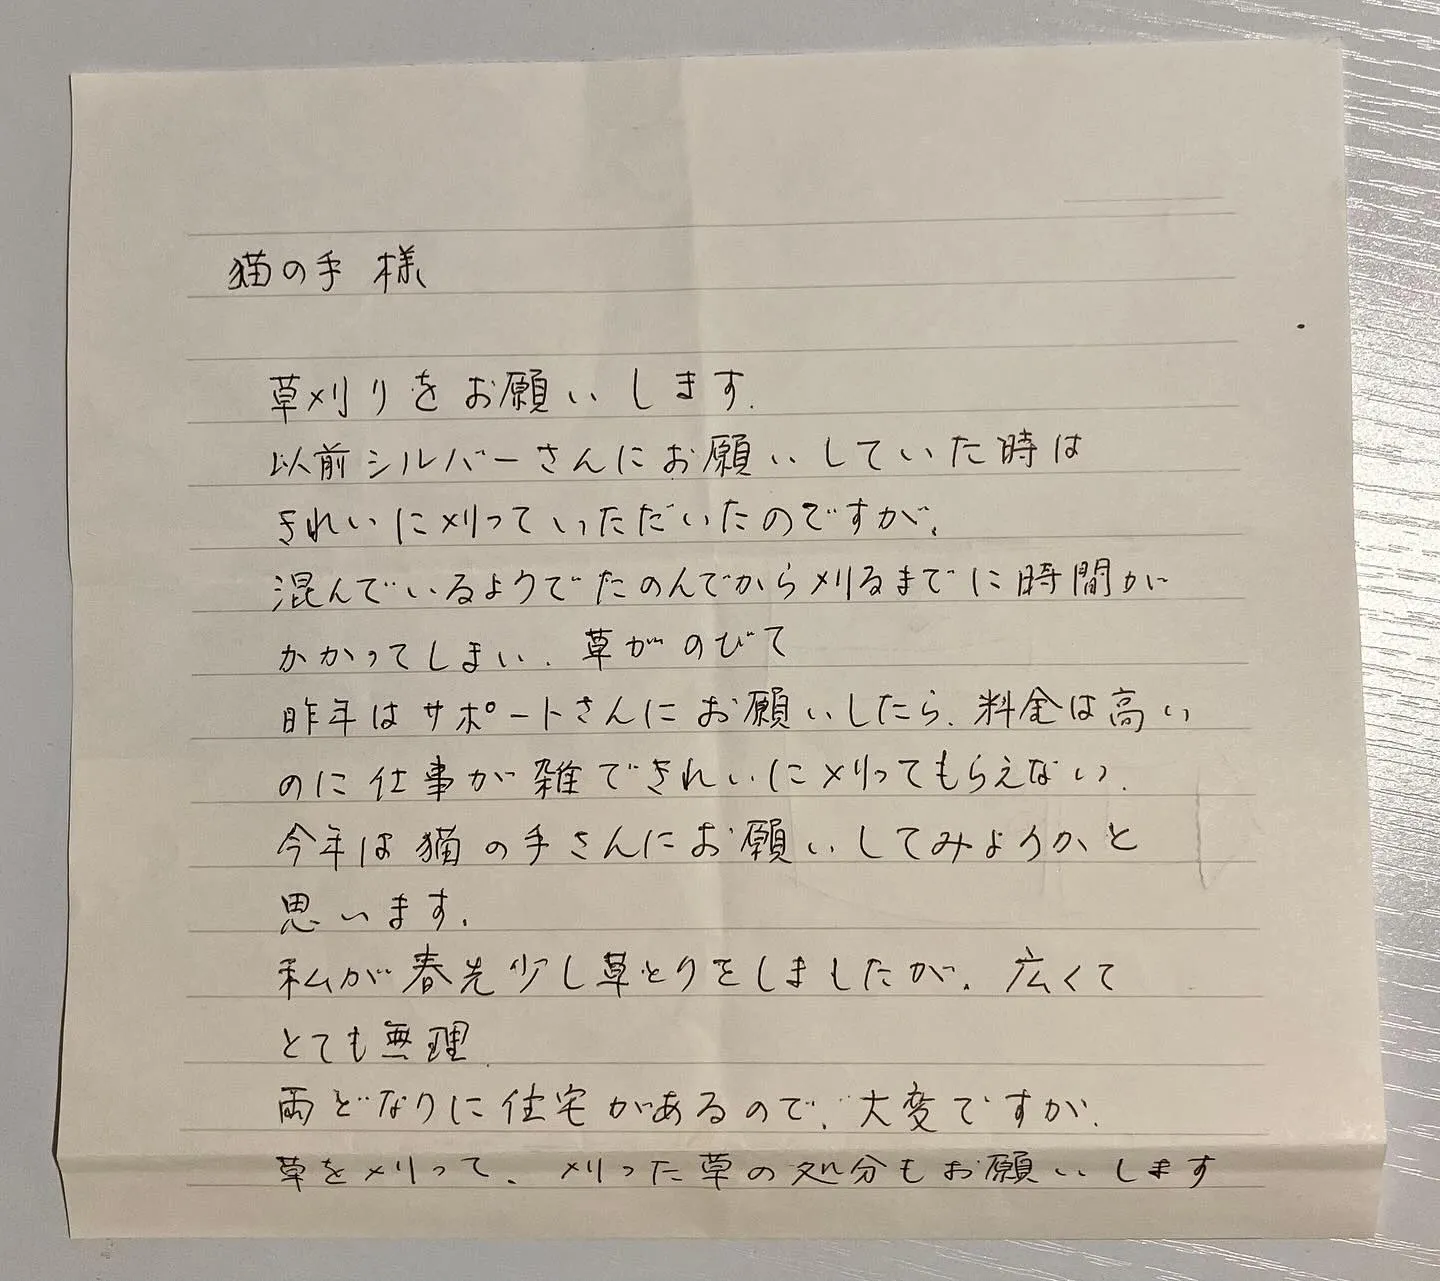 猫の手 様
草刈りをお願いします.
以前シルバーさんにお願いしていた時は
きれいに刈っていただいたのですが、
混んでいるようでたのんでから刈るまでに時間が
かかってしまい、草がのびて
昨年はサポートさんにお願いしたら、料金は高い
のに仕事が雑できれいに刈ってもらえない.
今年は猫の手さんにお願いしてみようかと
思います.
私が春先少し草とりをしましたが、広くて
とても無理
両どなりに住宅があるので、大変ですが、
草を刈って、刈った草の処分もお願いします